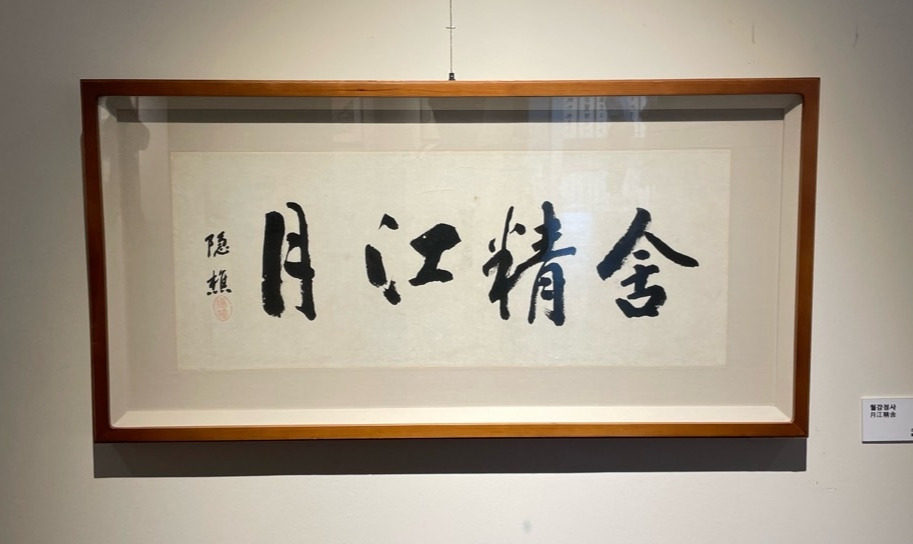 月江精舍
隱樵
월강정사
月江精舍